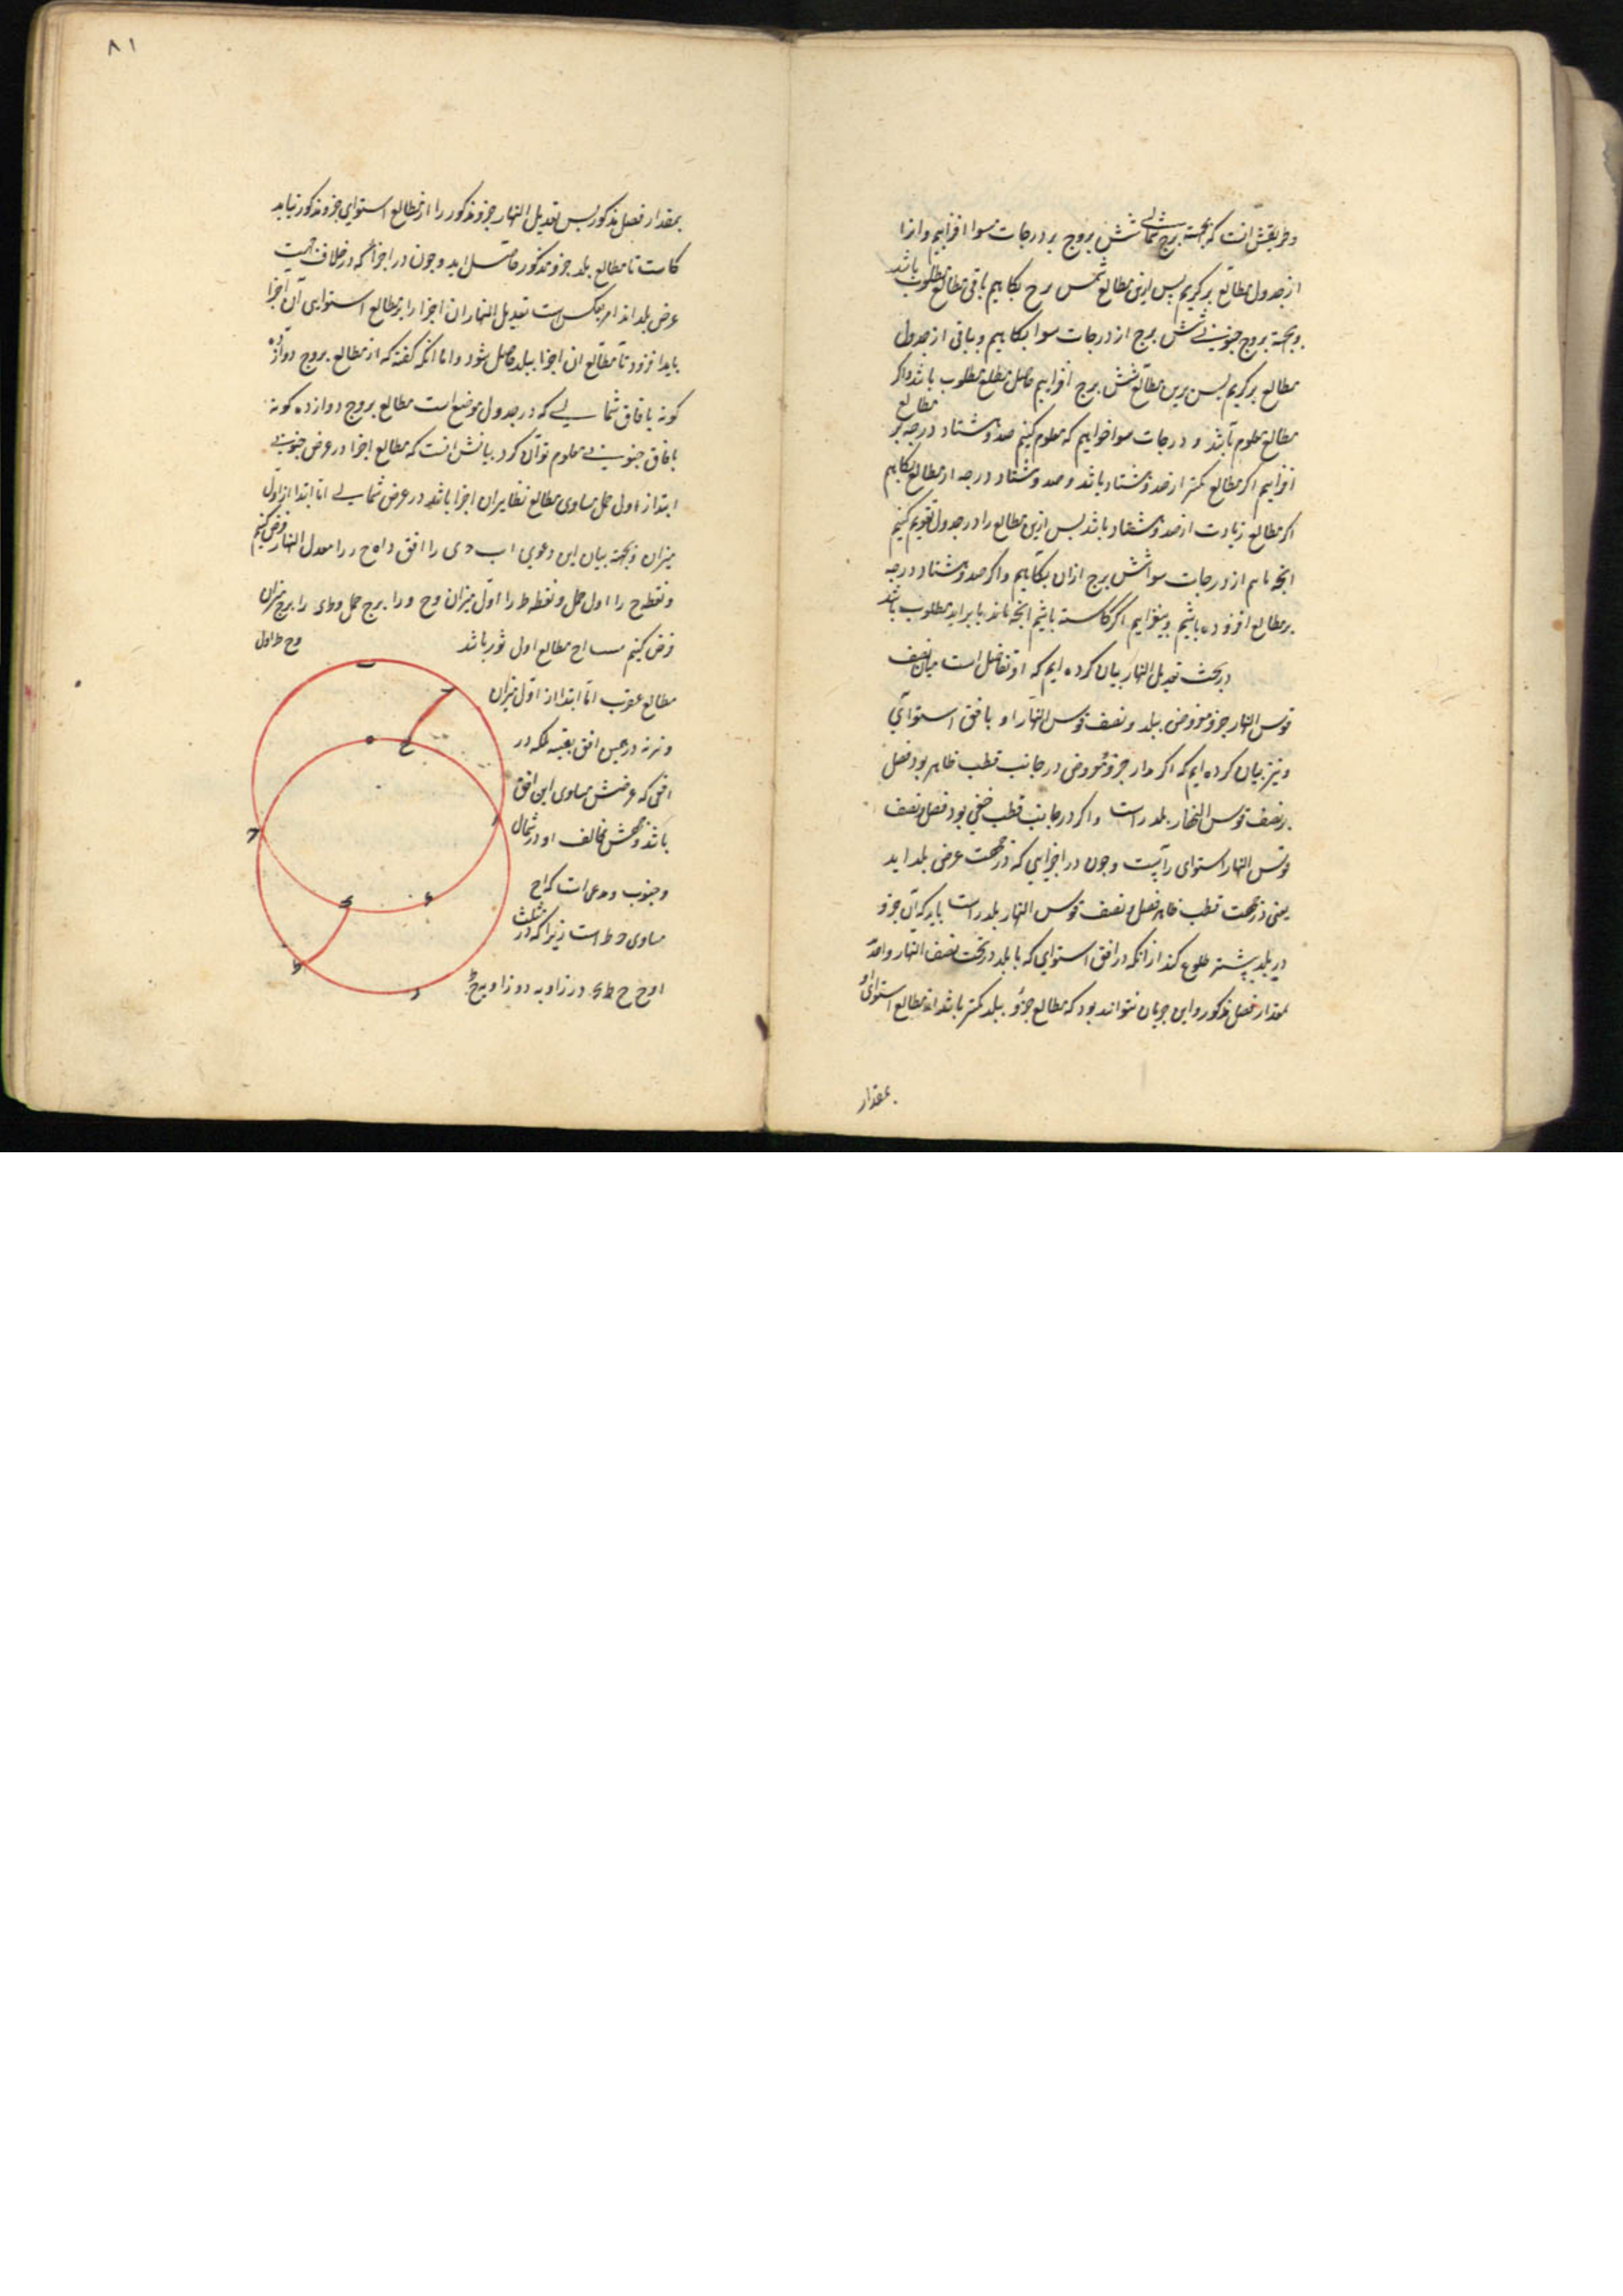 وطریقش انست که بجهة برج شمالی شش بروج بر درجات سوا افزاییم وازا
از جدول مطالع برگریم پس ازین مطالع شش برج بکاهیم باقی مطالع مطلوب باشد
وبجهة بروج جنوبی شش برج از درجات سوا بکاهیم و باقی از جدول
مطالع برگریم پس برین مطالع شش برج افزاییم حاصل مطالع مطلوب باشد واکر
مطالع معلوم باشد و درجات سوا خواهیم که معلوم کنیم صد و هشتاد درجه بر مطالع
افزاییم اکر مطالع کمتر از صد و هشتاد باشد و صد و هشتاد درجه از مطالع بکاهیم
اکر مطالع زیادت از صد و هشتاد باشد پس ازین مطالع را در جدول تقویم کنیم
انچه یابیم از درجات سوا شش برج ازان بکاهیم واکر صد و هشتاد درجه
بر مطالع افزوده باشیم و بیفزاییم اکر کاسته باشیم انچه ماند یا براید مطلوب باشد
در بحث تعدیل النهار بیان کرده ایم که او تفاضل است میان نصف
قوس النهار جزو مفروض ببلد و نصف قوس النهار او بافق استوائی
ونیز بیان کرده ایم که اکر مدار جزو مفروض در جانب قطب ظاهر بود فضل
بر نصف قوس النهار بلد راست واکر در جانب قطب خفی بود فضل نصف
قوس النهار استوای راست وچون در اجزایی که در جهت عرض بلد اید
یعنی در جهت قطب ظاهر فضل نصف قوس النهار بلد راست باید که آن جزو
در بلد پیشتر طلوع کند ازانکه در افق استوایی که با بلد در تحت نصف النهار واحد
بمقدار فضل مذکور واین چنان تواند بود که مطالع جزو ببلد کمتر باشد از مطالع استوای او
بمقدار
۸۱
بمقدار فضل مذکور پس تعدیل النهار جزو مذکور را از مطالع استوای جزو مذکور باید
کاست تا مطالع بلد جزو مذکور حاصل اید وچون در اجزا که در خلاف جهت
عرض بلد اند امر بعکس است تعدیل النهار ان اجزا را بر مطالع استوایی آن اجزا
باید افزود تا مطالع ان اجزا ببلد حاصل شود واما انکه کفته که از مطالع بروج دوازده
کونه بافاق شمالی که در جدول موضع است مطالع بروج دوازده کونه
بافاق جنوبی معلوم توان کرد بیانش انست که مطالع اجزا در عرض جنوبی
ابتدا از اول حمل مساوی مطالع نظایر ان اجزا باشد در عرض شمالی اما ابتدا از اول
میزان وبجهة بیان این دعوی اب حی را افق و اه ح ر را معدل النهار فرض کنیم
ونقطه ح را اول حمل ونقطه ط را اول میزان وح و را برج حمل وط ی را برج میزان
فرض کنیم اح مطالع اول ثور باشد وح ط اول
مطالع عقرب اما ابتدا از اول میزان
ونه در همین افق بعینه بلکه در
افقی که عرضش مساوی این افق
باشد وجهتش مخالف او در شمال
وجنوب ومدعی است که اح
مساوی ح ط است زیرا که در مثلث
اوح ح ط ی در زاویه و دو زاویه ح ط